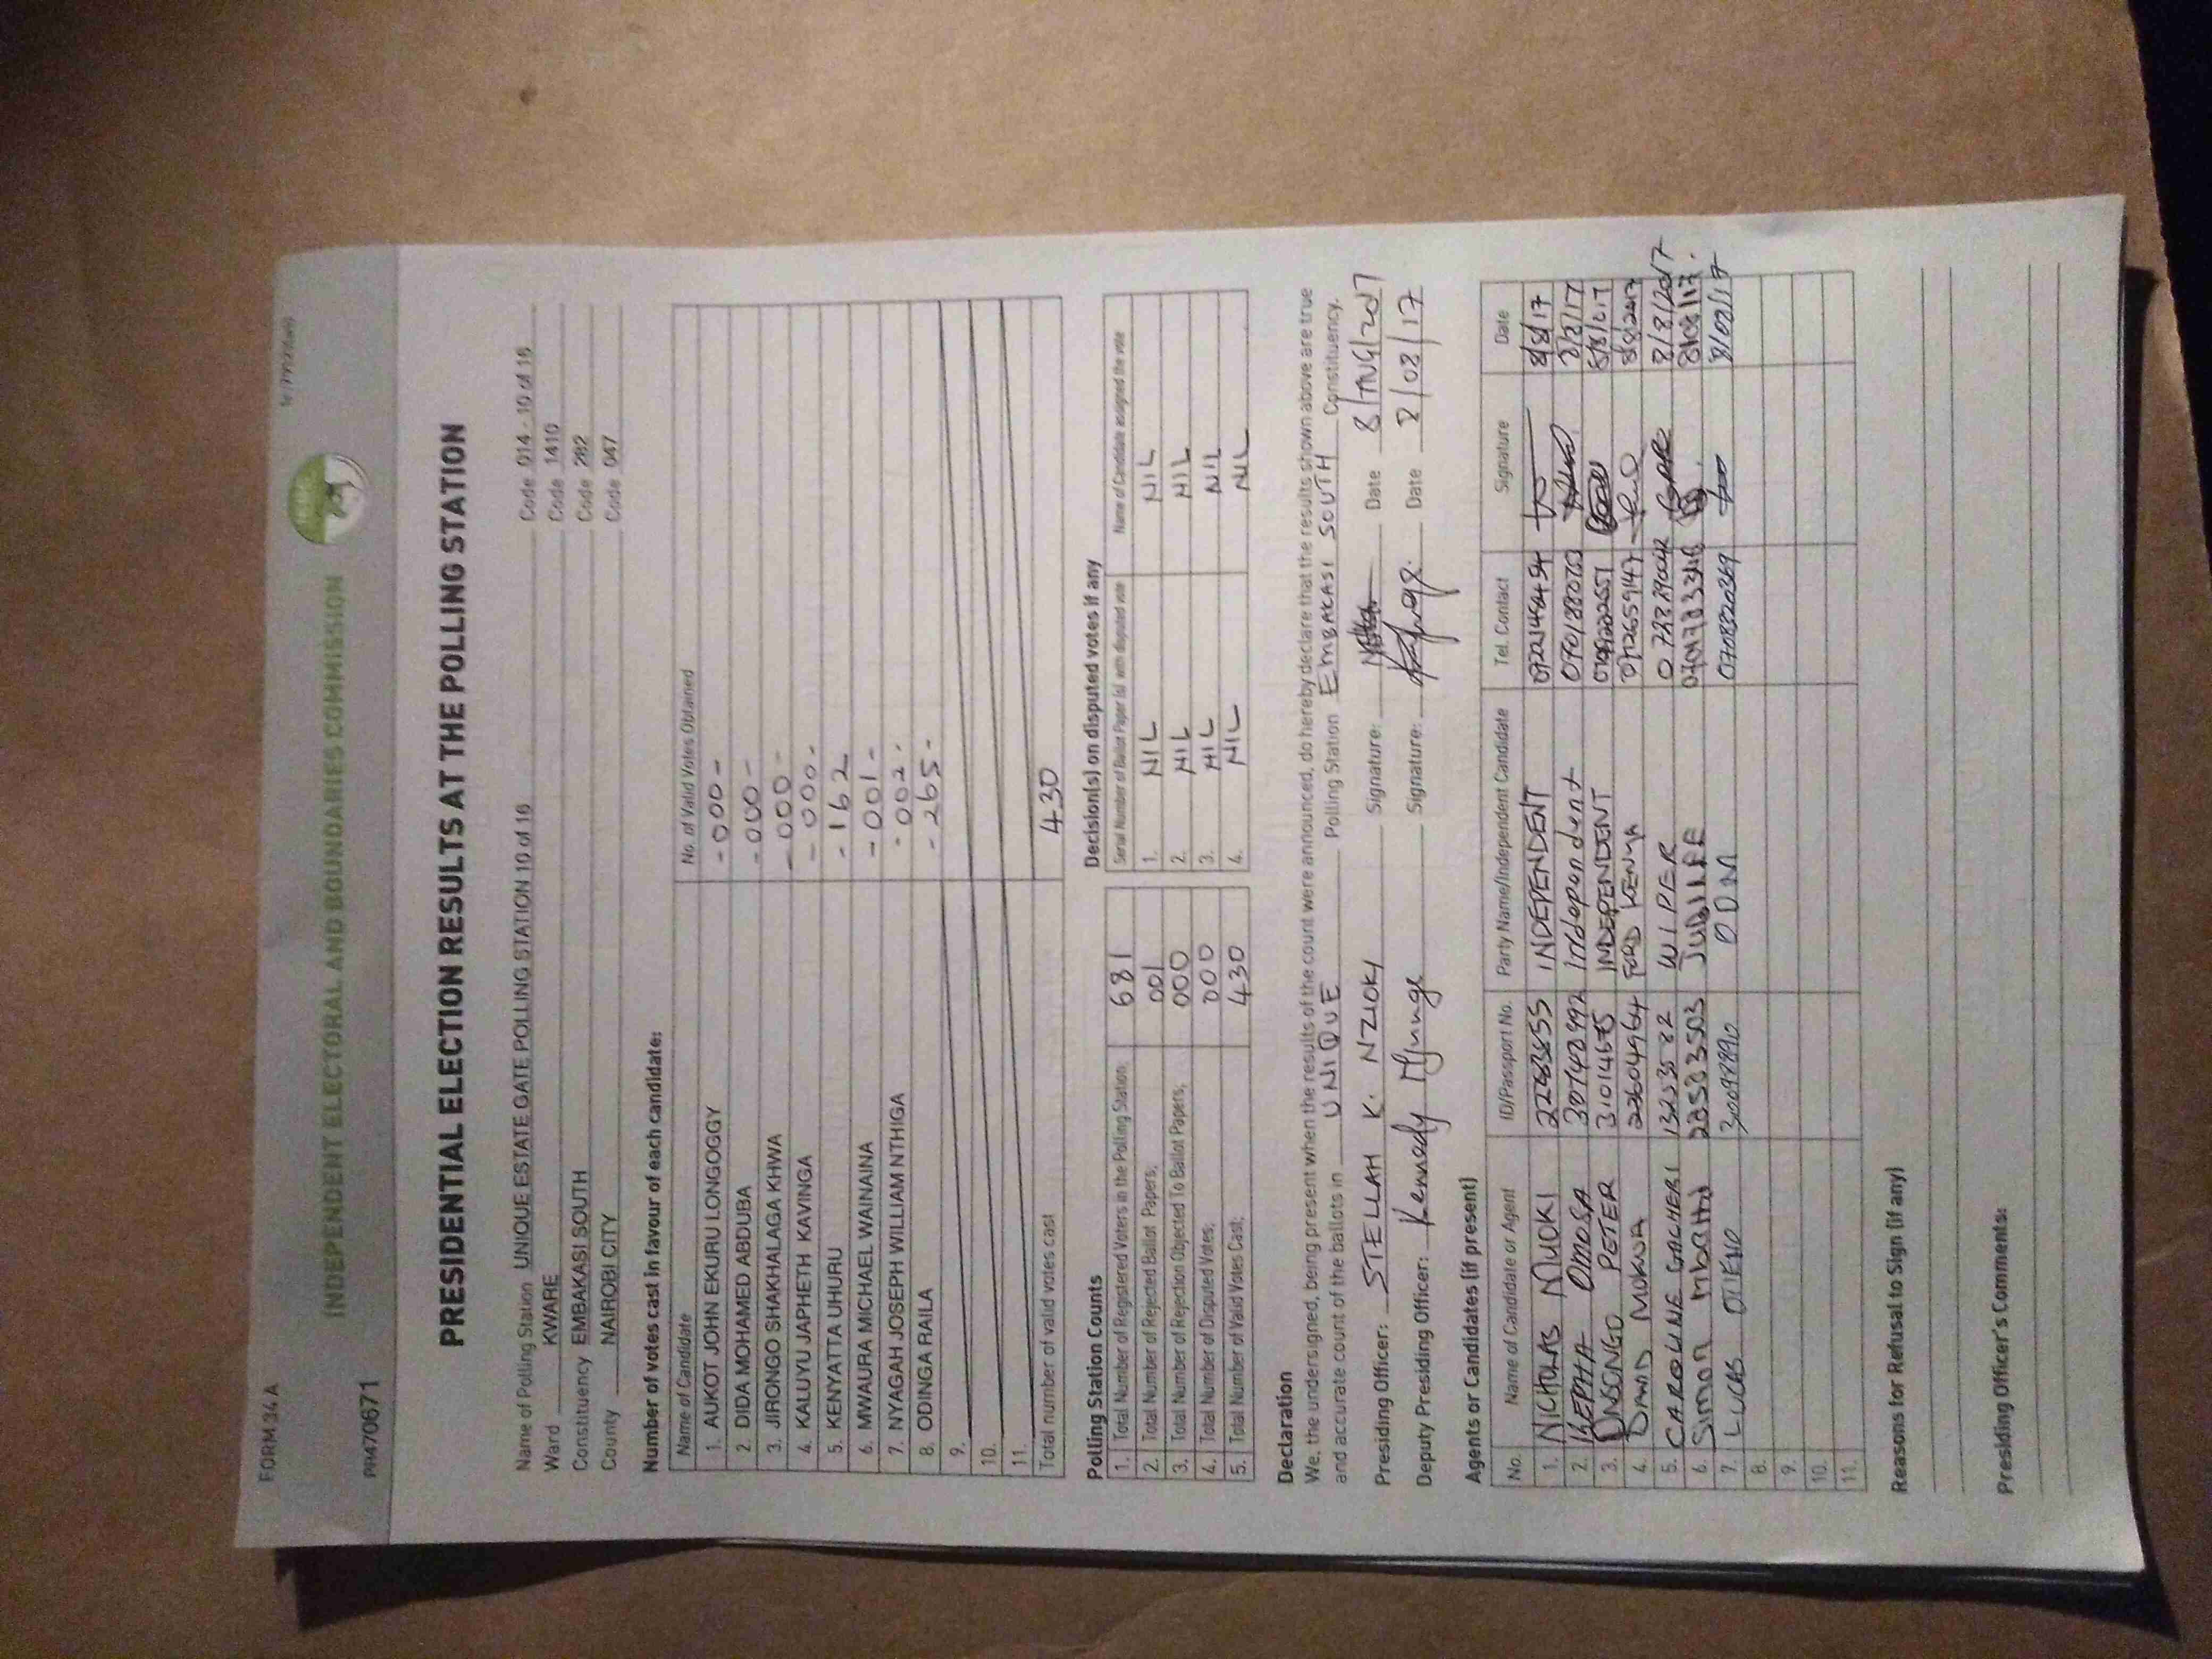 FORM 34 A
INDEPENDENT ELECTORAL AND BOUNDARIES COMMISSION
PRESIDENTIAL ELECTION RESULTS AT THE POLLING STATION
Name of Polling Station UNIQUE ESTATE GATE POLLING STATION 10 of 16 Code 014 - 10 of 16
Ward KWARE Code 1410
Constituency EMBAKASI SOUTH Code 282
County NAIROBI CITY Code 047
Number of votes cast in favour of each candidate:
Name of Candidate No. of Valid Votes Obtained
1. AUKOT JOHN EKURU LONGOGGY - 000 -
2. DIDA MOHAMED ABDUBA - 000 -
3. JIRONGO SHAKHALAGA KHWA - 000 -
4. KALUYU JAPHETH KAVINGA - 000 -
5. KENYATTA UHURU - 162
6. MWAURA MICHAEL WAINAINA - 001 -
7. NYAGAH JOSEPH WILLIAM NTHIGA - 002 -
8. ODINGA RAILA - 265 -
9.
10.
11.
Total number of valid votes cast 430
Polling Station Counts
1. Total Number of Registered Voters in the Polling Station; 681
2. Total Number of Rejected Ballot Papers; 001
3. Total Number of Rejection Objected To Ballot Papers; 000
4. Total Number of Disputed Votes; 000
5. Total Number of Valid Votes Cast; 430
Decision(s) on disputed votes if any
Serial Number of Ballot Paper (s) with disputed vote Name of Candidate assigned the vote
1. NIL NIL
2. NIL NIL
3. NIL NIL
4. NIL NIL
Declaration
We, the undersigned, being present when the results of the count were announced, do hereby declare that the results shown above are true
and accurate count of the ballots in UNIQUE Polling Station EMBAKASI SOUTH Constituency.
Presiding Officer: STELLAH K. NZIOKI Signature: Date 8/AUG/2017
Deputy Presiding Officer: Kennedy Signature: Date 8/08/17
Agents or Candidates (if present)
No. Name of Candidate or Agent ID/Passport No. Party Name/Independent Candidate Tel. Contact Signature Date
1. NICHOLAS MUOKI INDEPENDENT 8/8/17
2. KEPHA OMOSA Independent 8/8/17
3. PETER INDEPENDENT
4. DAVID MOKUA FORD KENYA 8/8/2017
5. CAROLINE GACHERI WIPER 8/8/2017
6. Simon JUBILEE 8/08/17
7. LUCAS OTIENO ODM 0708320369 8/08/17
8.
9.
10.
11.
Reasons for Refusal to Sign (if any)
Presiding Officer's Comments: